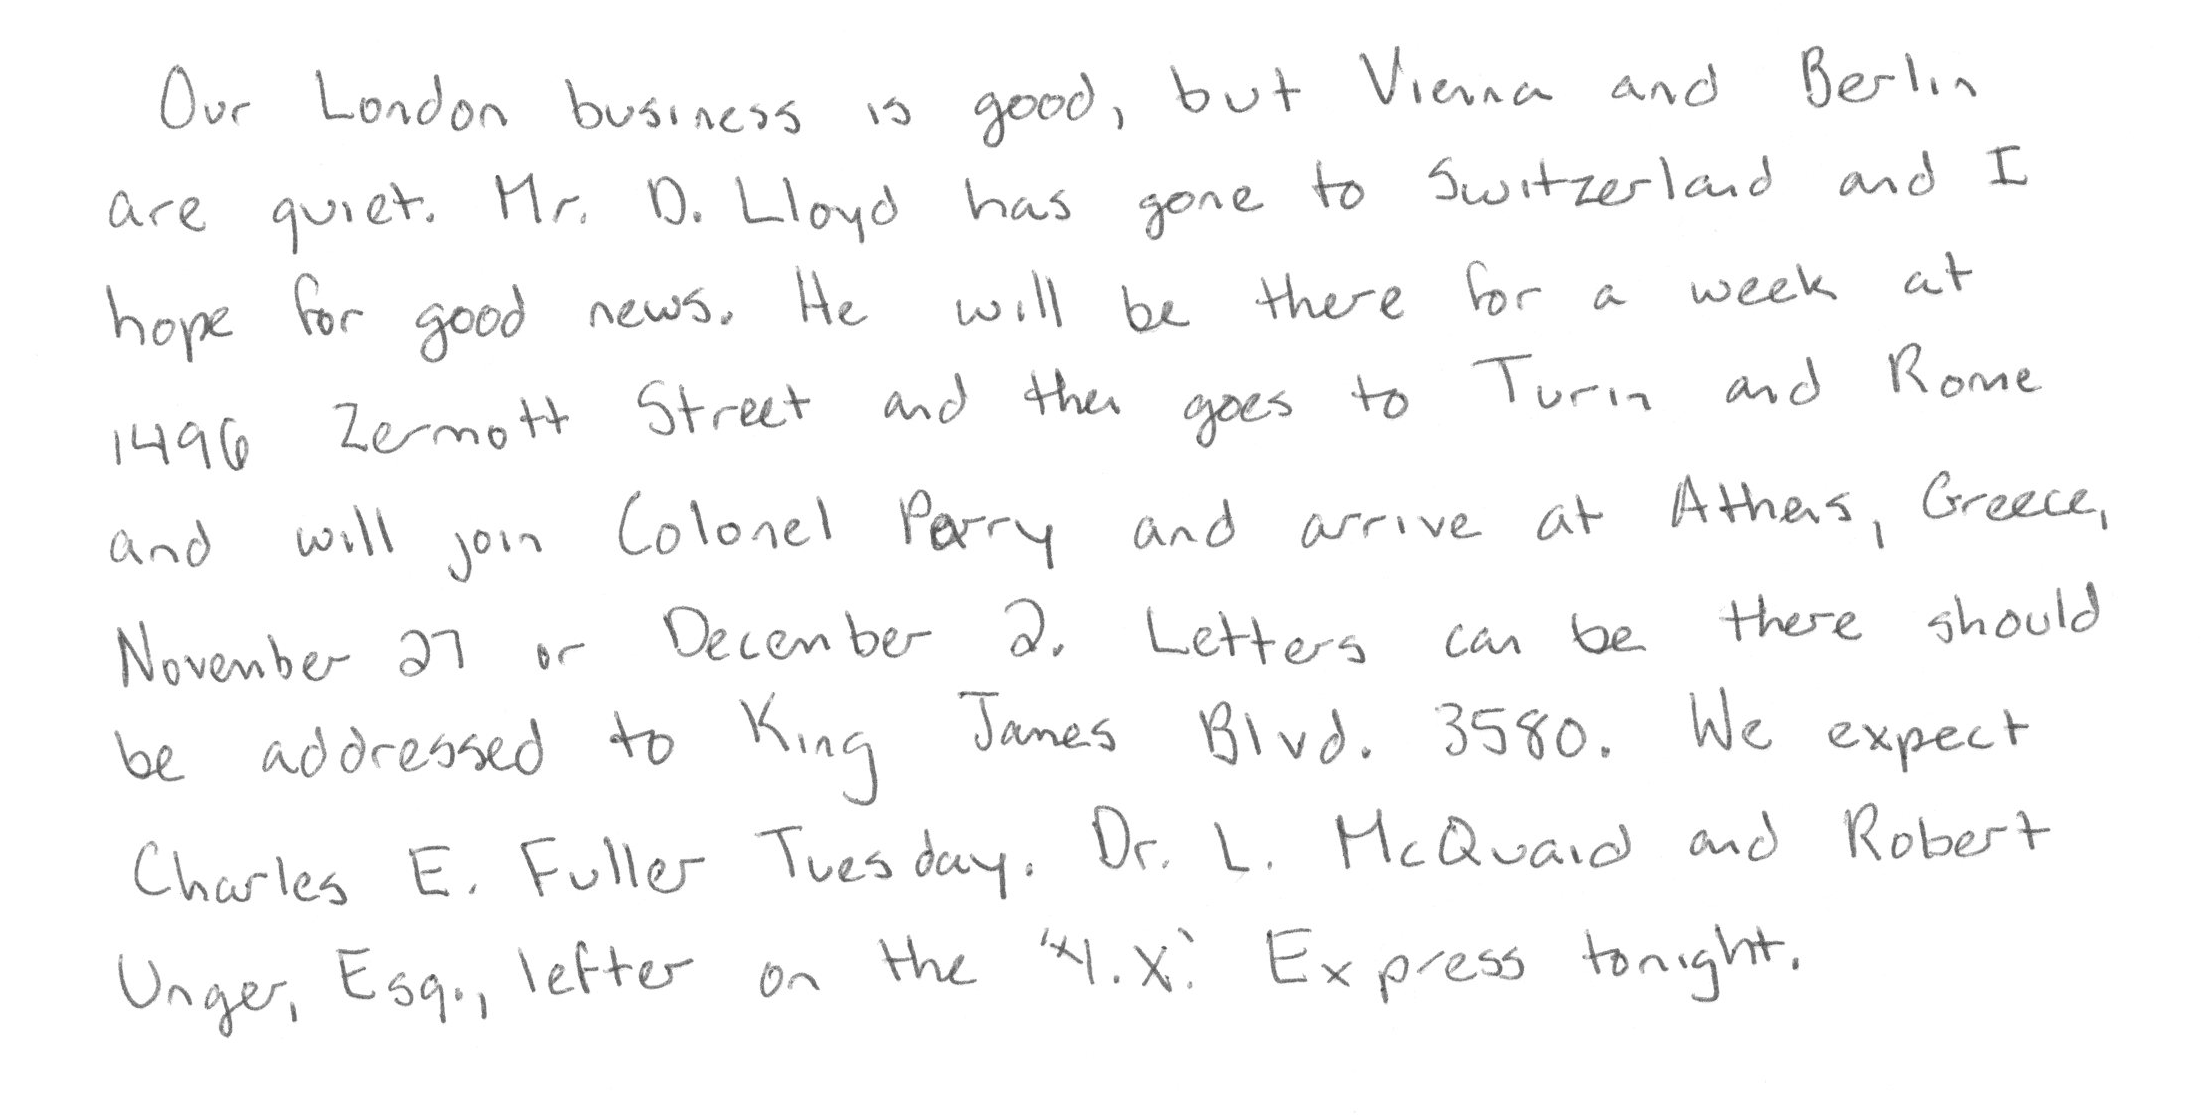 Our London business is good, but Vienna and Berlin
are quiet. Mr. D. Lloyd has gone to Switzerland and I
hope for good news. He will be there for a week at
1496 Zermott Street and then goes to Turin and Rome
and will join Colonel Parry and arrive at Athens, Greece,
November 27 or December 2. Letters can be there should
be addressed to King James Blvd. 3580. We expect
Charles E. Fuller Tuesday. Dr. L. McQuaid and Robert
Unger, Esq., lefter on the Express tonight.